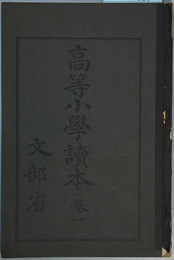 高等小學讀本 卷一
文部省